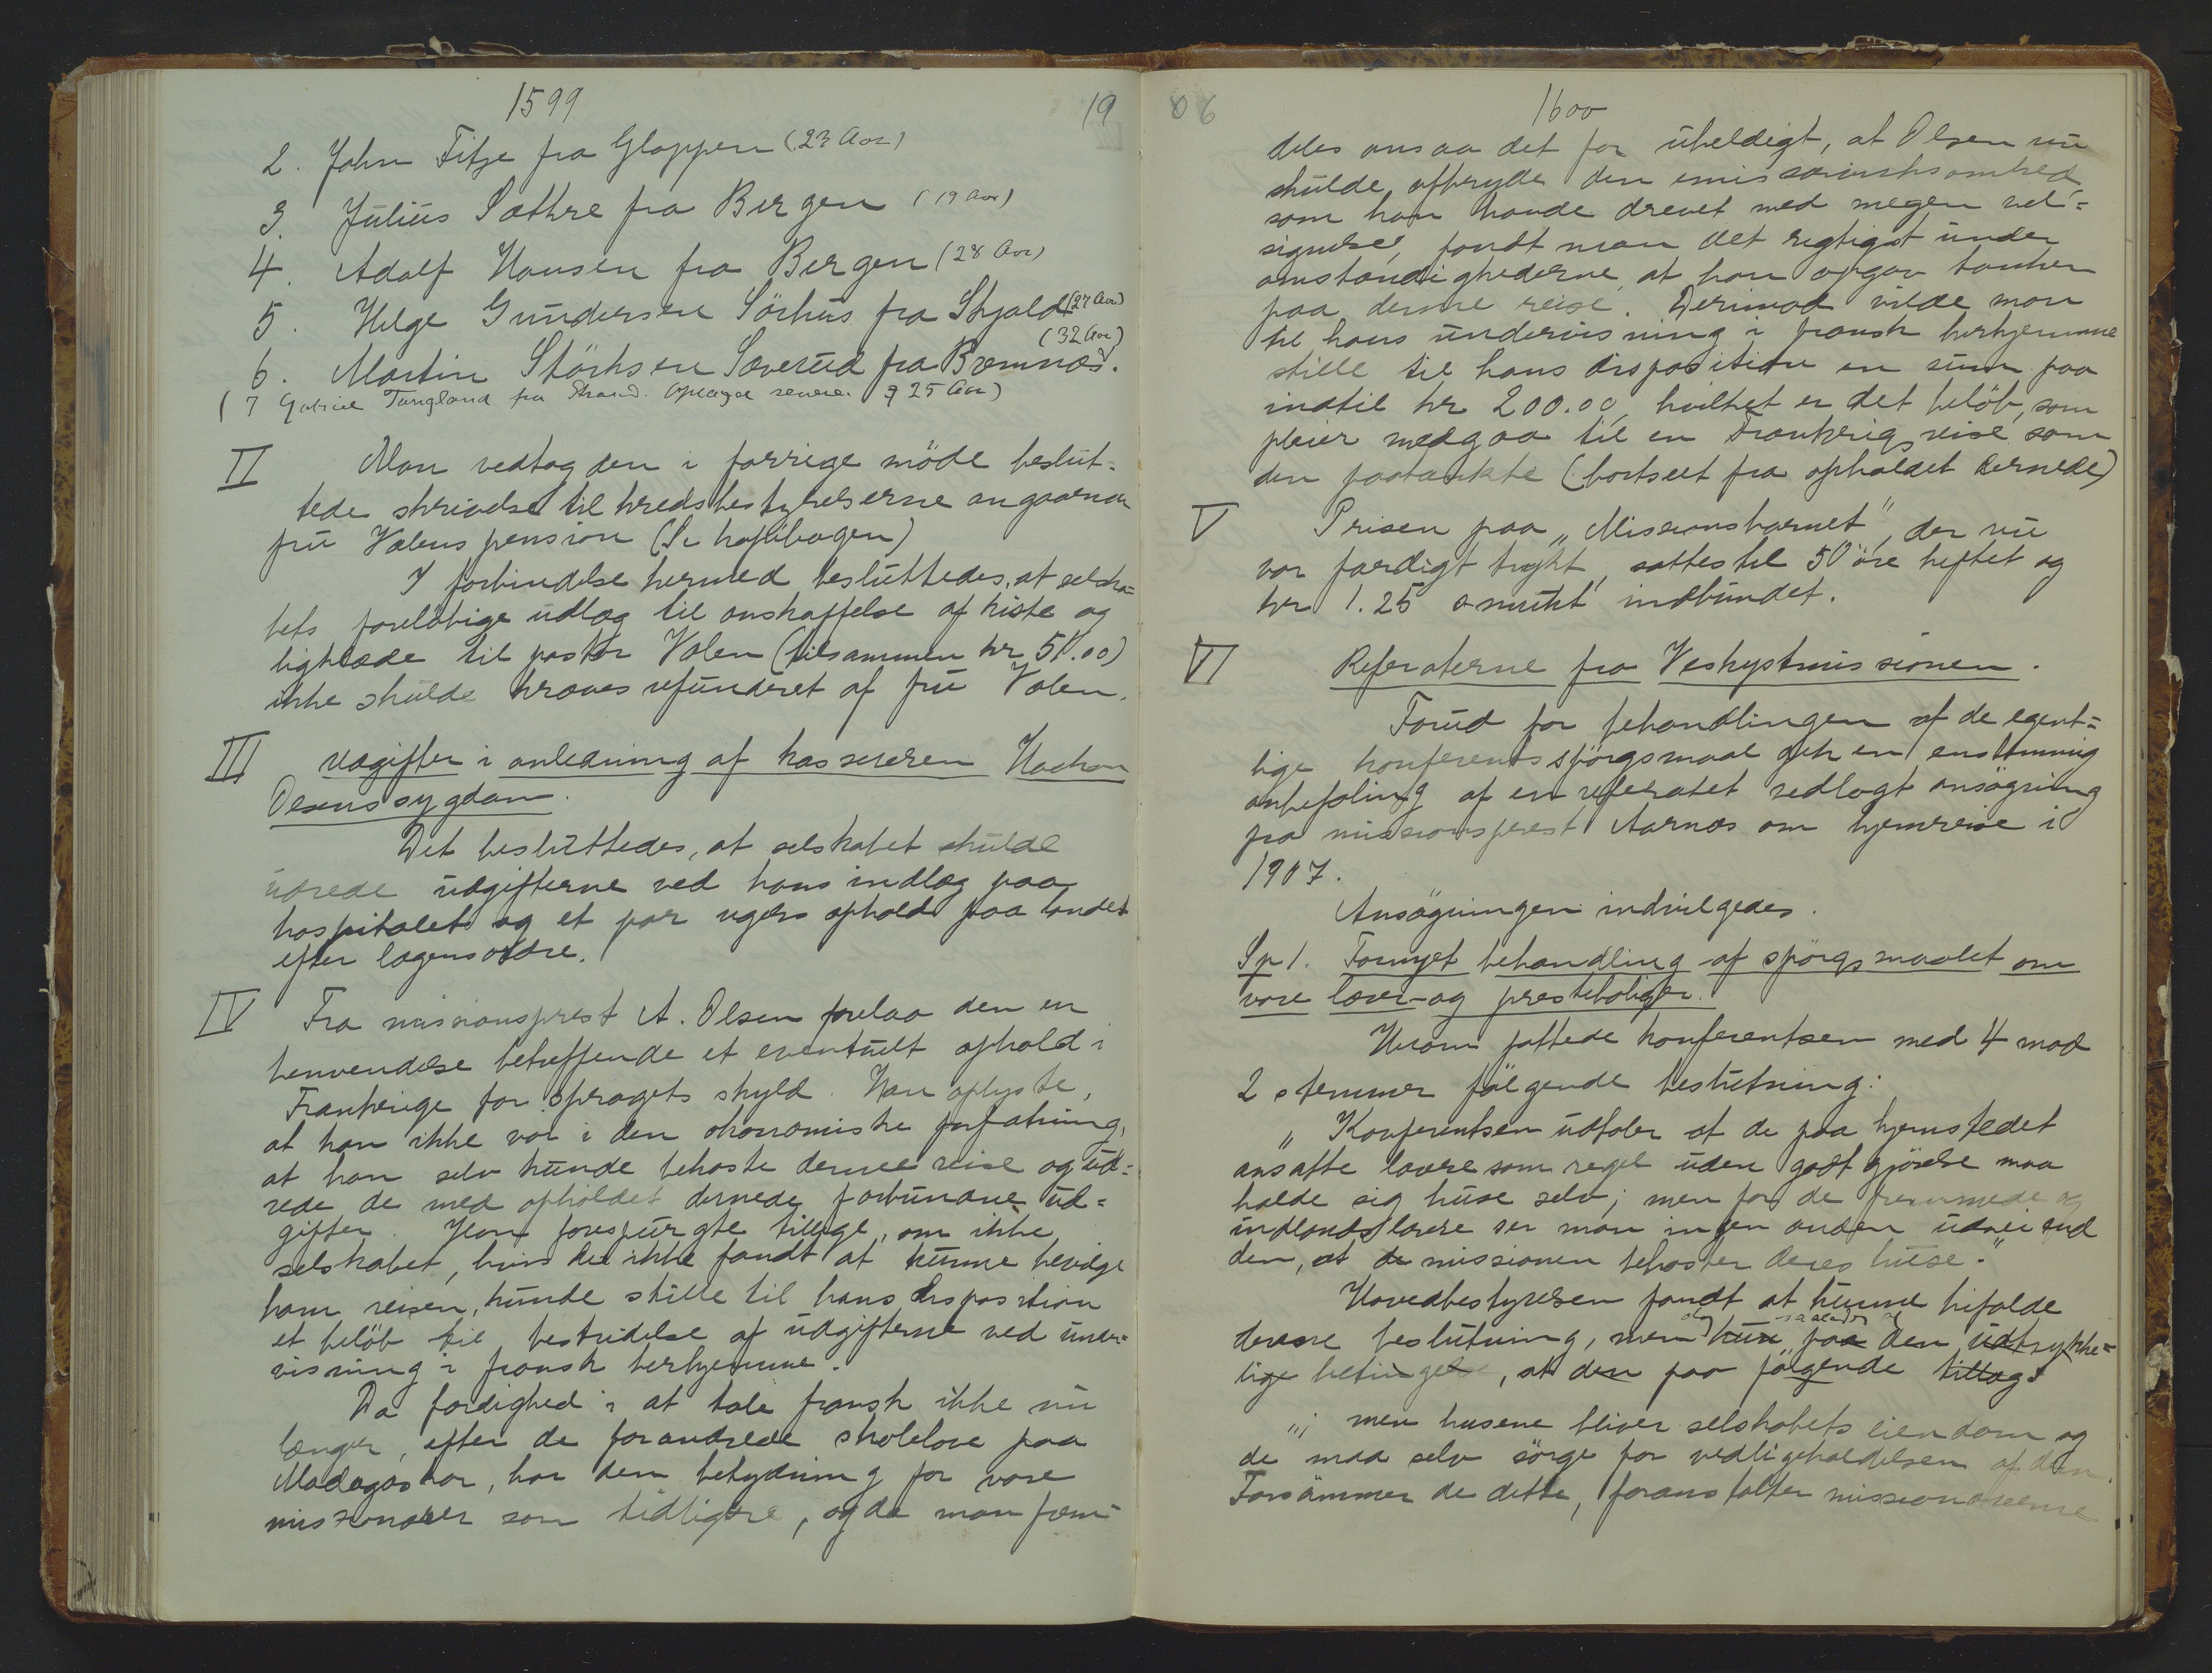 1599
19
2. John Fitje fra Gloppen (23 Aar)
3. Julius Sæthre fra Bergen (19 Aar)
4. Adolf Hansen fra Bergen (28 Aar)
5. Helge Gundersen Sörhus fra Skjold (27 Aar)
(32 Aar)
6. Martin Störksen Sæverud fra Bremnæs.
(7 Gabriel Tungland fra Strand. Optaget senere. 25 Aar)
II Man vedtog den i forrige möde beslut-
tede skrivelse til kredsbestyrelserne angaaende
fru Valens pension (Se kopibogen)
I forbindelse hermed besluttedes, at selska-
bets forelöbige udlæg til anskaffelse af kiste og
ligklæde til pastor Valen (tilsammen kr 51.00)
ikke skulde kræves refunderet af fru Valen.
III Udgifter i anledning af kassereren Haakon
Olsens sygdom.
Det besluttedes, at selskabet skulde
udrede udgifterne ved hans indlæg paa
hospitalet og et par ugers ophold paa landet
efter lægens ordre.
IV Fra missionsprest A. Olsen forelaa den en
henvendelse betræffende et eventuelt ophold i
Frankrige for sprogets skyld. Han oplyste,
at han ikke var i den ökonomiske forfatning,
at han selv kunde bekoste denne reise og ud-
rede de med opholdet dernede forbundne ud-
gifter. Han forespurgte tillige, om ikke
selskabet, hvis det ikke fandt at kunne bevilge
ham reisen, kunde stille til hans disposition
et belöb til bestridelse af udgifterne ved under-
visning i fransk herhjemme.
Da færdighed i at tale fransk ikke nu
længer, efter de forandrede skolelove paa
Madagaskar, har den betydning for vore
missionærer som tidligere, og da man frem-
06
1600
deles ansaa det for uheldigt, at Olsen nu
skulde afbryde den emissærvirksomhed,
som han havde drevet med megen vel-
signelse, fandt man det rigtigst under
omstændighederne, at han opgav tanken
paa denne reise. Derimod vilde man
til hans undervisning i fransk herhjemme
stille til hans disposition en sum paa
indtil kr 200.00, hvilket er det belöb, som
pleier medgaa til en Frankrigsreise som
den paatænkte (bortseet fra opholdet dernede)
V Prisen paa "Missionsbarnet", der nu
var færdigt trykt, sattes til 50 öre heftet og
kr 1.25 smukt indbundet.
VI Referaterne fra Vestkystmissionen.
Forud for behandlingen af de egent-
lige konferentsspörgsmaal gik en enstemmig
anbefaling af en referatet vedlagt ansögning
fra missionsprest Aarnæs om hjemreise i
1907.
Ansögningen indvilgedes.
Sp 1. Fornyet behandling af spörgsmaalet om
vore lærer- og presteboliger.
Herom fattede konferentsen med 4 mod
2 stemmer fölgende beslutning:
"Konferentsen udtaler at de paa hjemstedet
ansatte lærere som regel uden godtgjörelse maa
holde sig huse selv; men for de fremmede og
indlandslærere ser man ingen anden udvei end
den, at de missionen bekoster deres huse."
Hovedbestyrelsen fandt at kunne bifalde
dog saaledes
denne beslutning, men kun paa den udtrykke-
lige betingelse, at den faar fölgende tillæg:
"; men husene bliver selskabets eiendom og
de maa selv sörge for vedligeholdelsen af dem.
Forsömmer de dette, foranstalter missionærerne